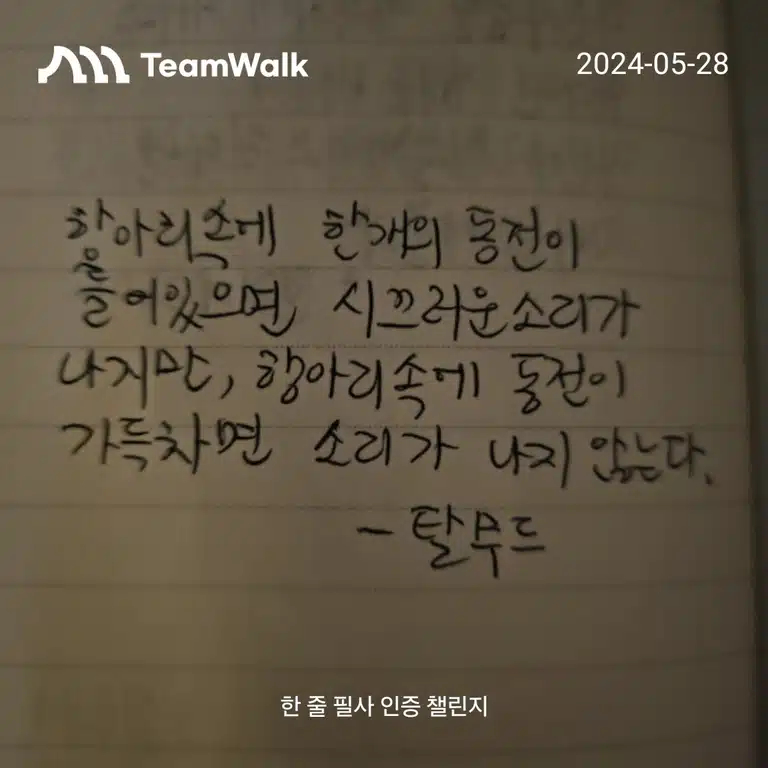 TeamWalk
2024-05-28
항아리속에 한개의 동전이
들어있으면 시끄러운소리가
나지만, 항아리속에 동전이
가득차면 소리가 나지 않는다.
- 탈무드
한 줄 필사 인증 챌린지